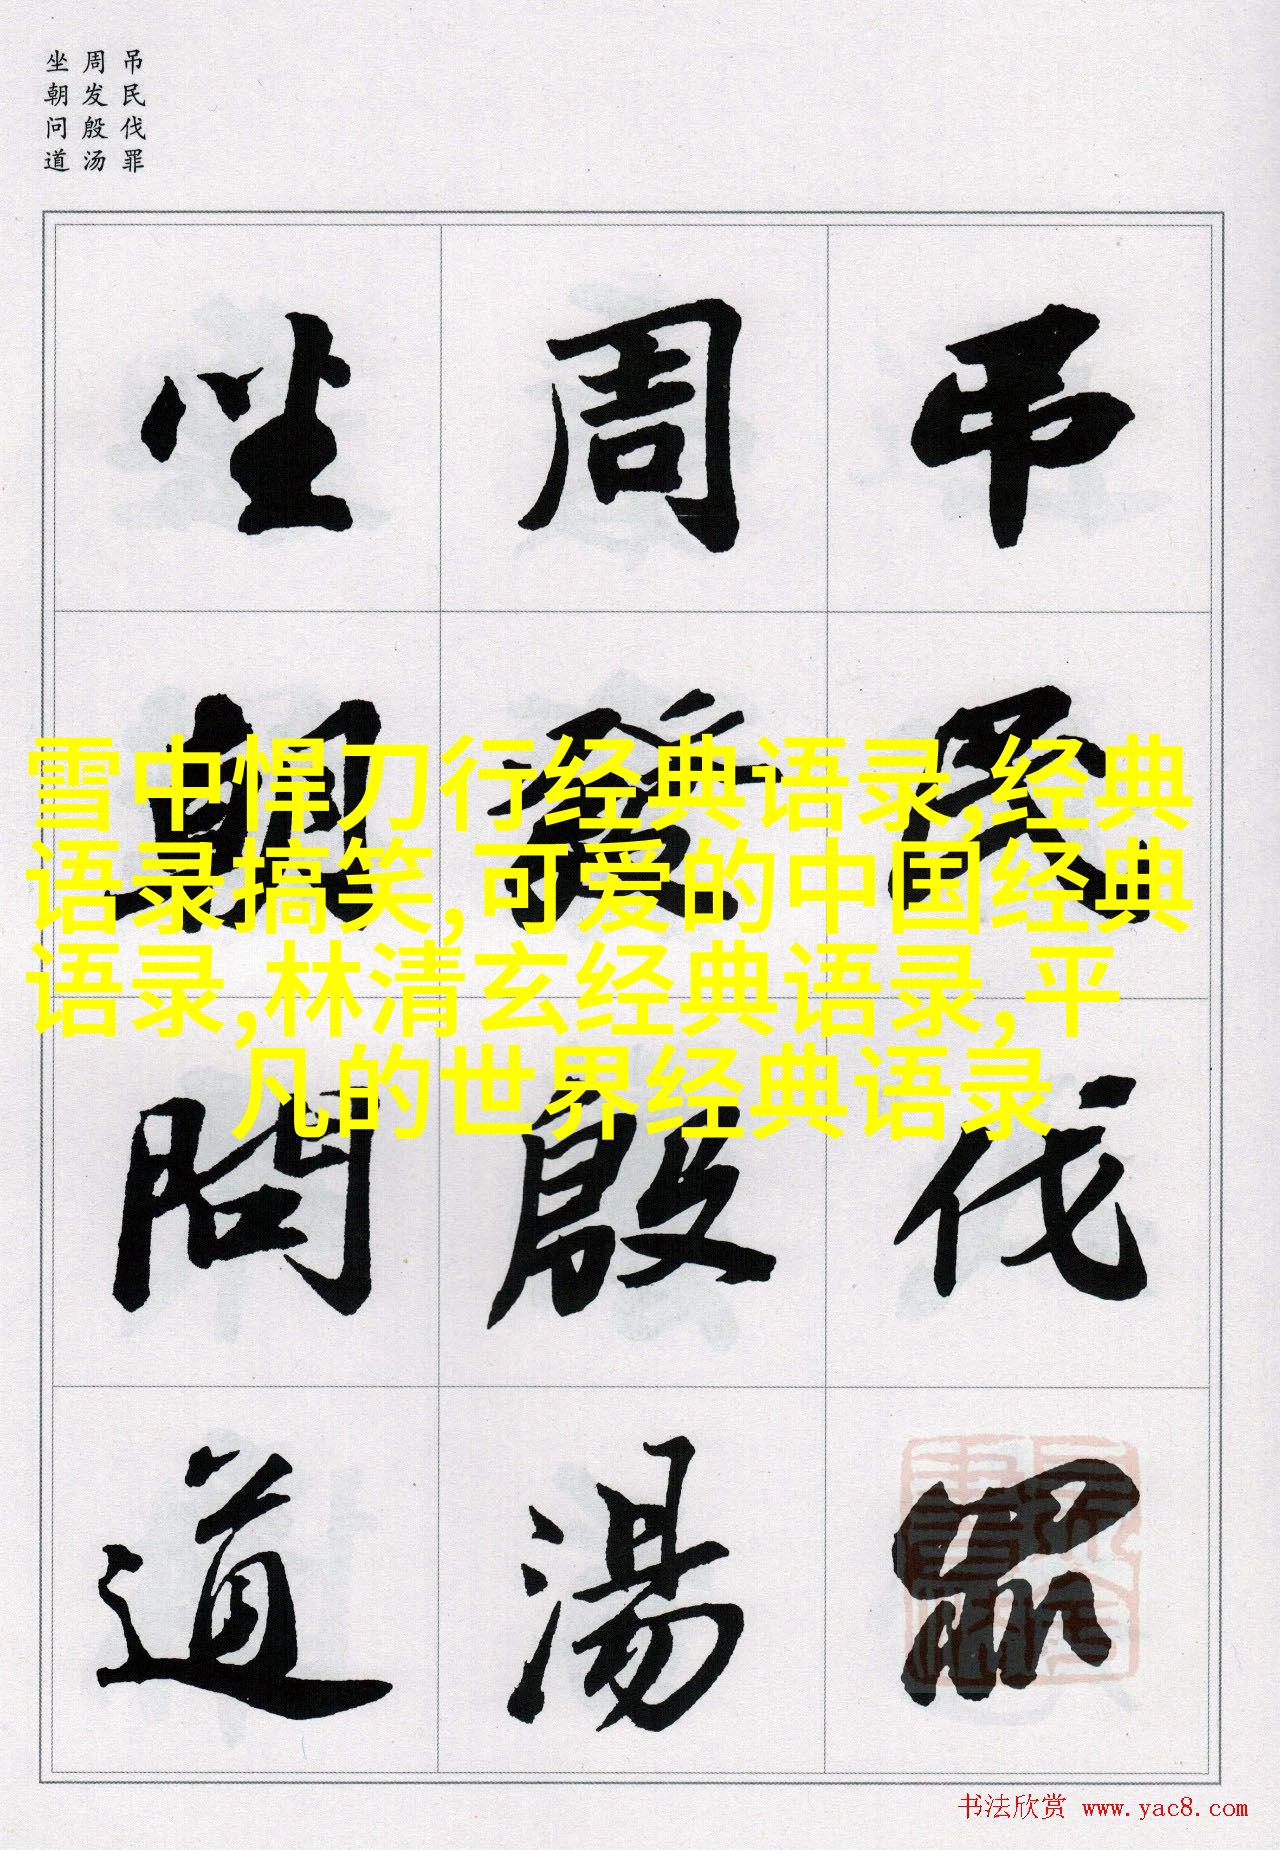 吊民伐罪
周发殷汤
坐朝问道
吊民伐罪
周發殷湯
坐朝問道
雪中悍刀行经典语录,经典
语录搞笑,可爱的中国经典
语录,林清玄经典语录,平
凡的世界经典语录
书法欣赏 www.yac8.com